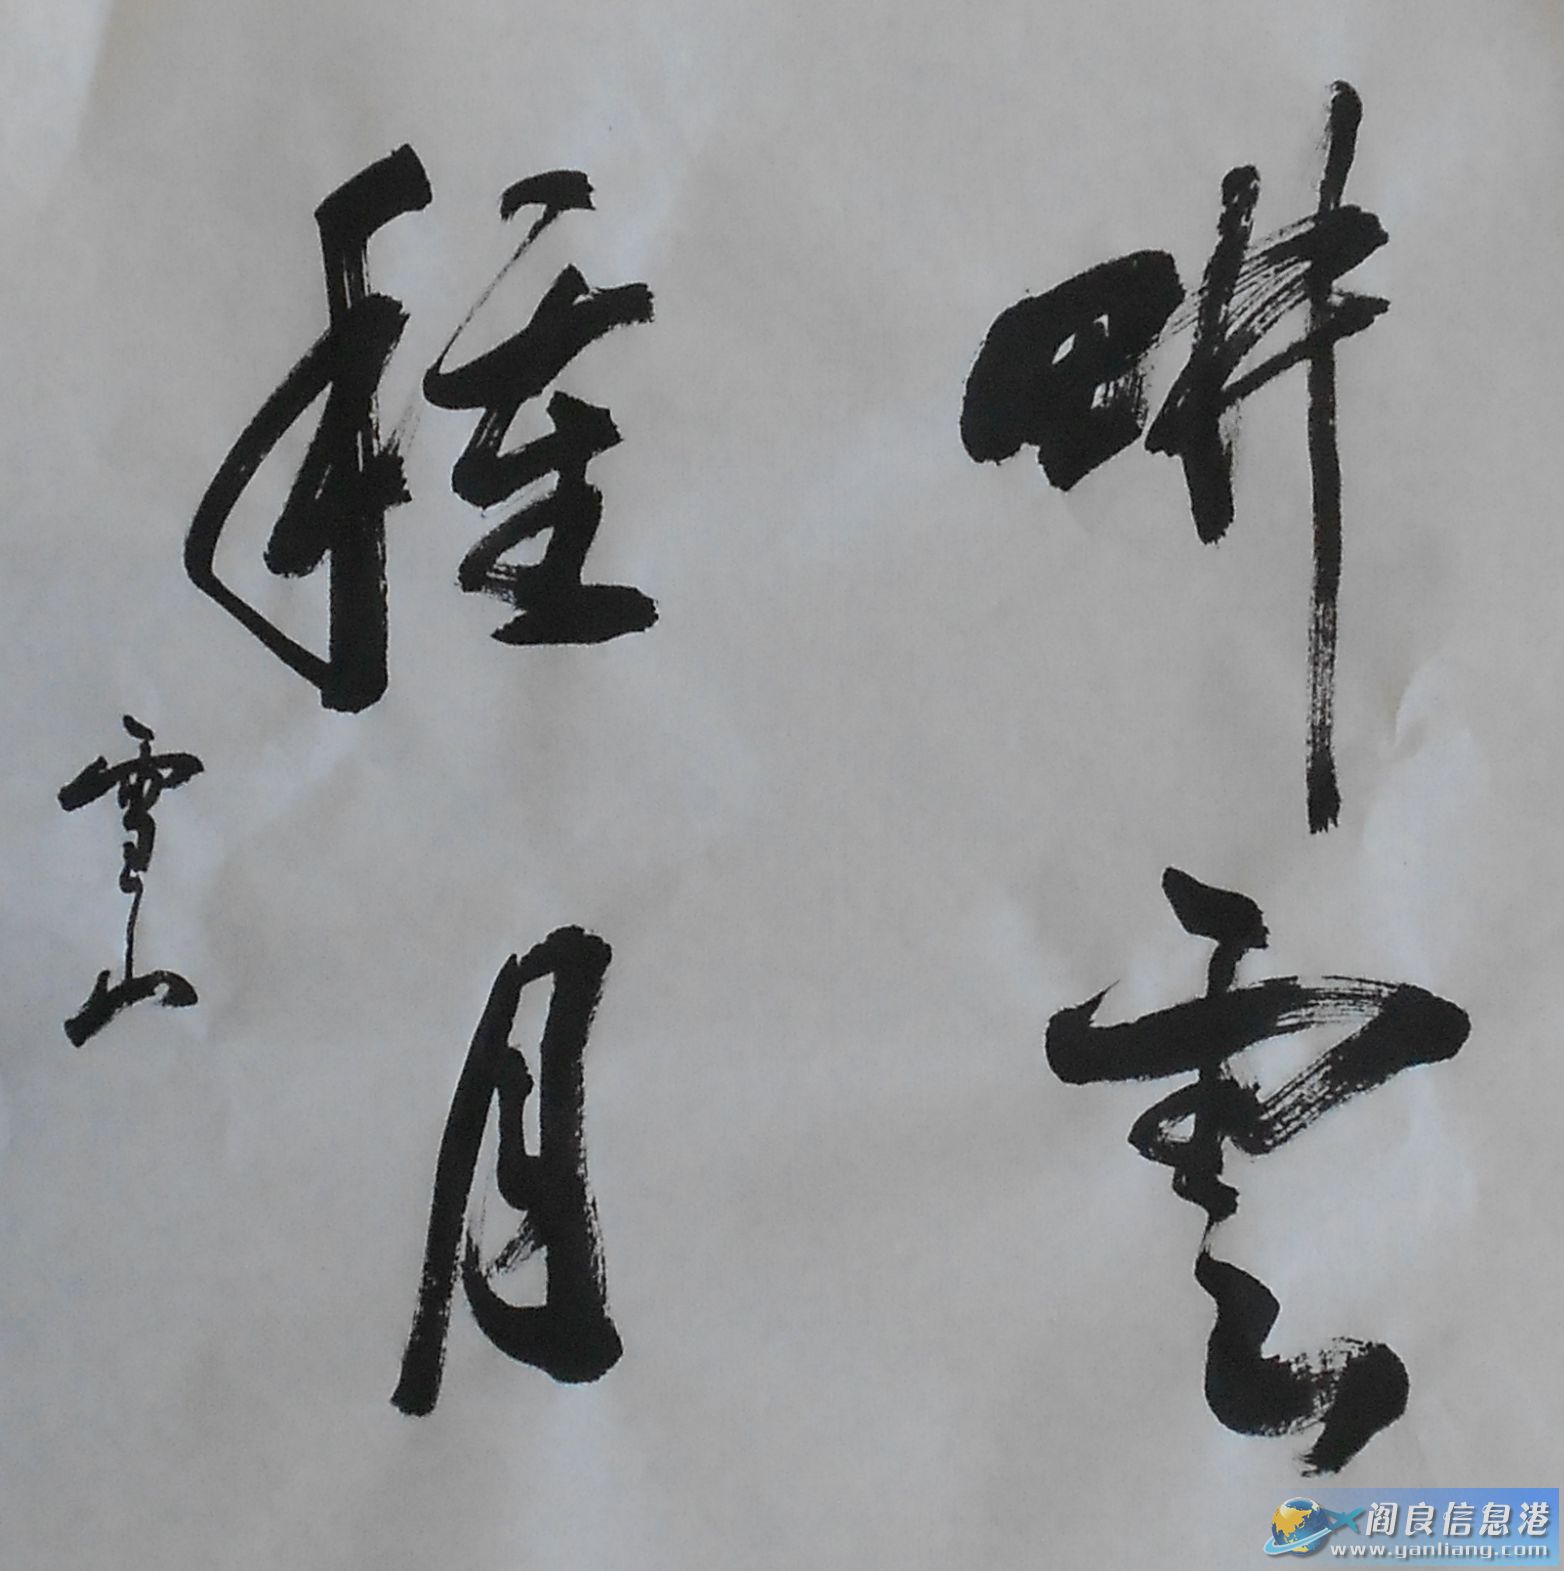 畊雲
種月
雪山
阎良信息港
www.yanliang.com